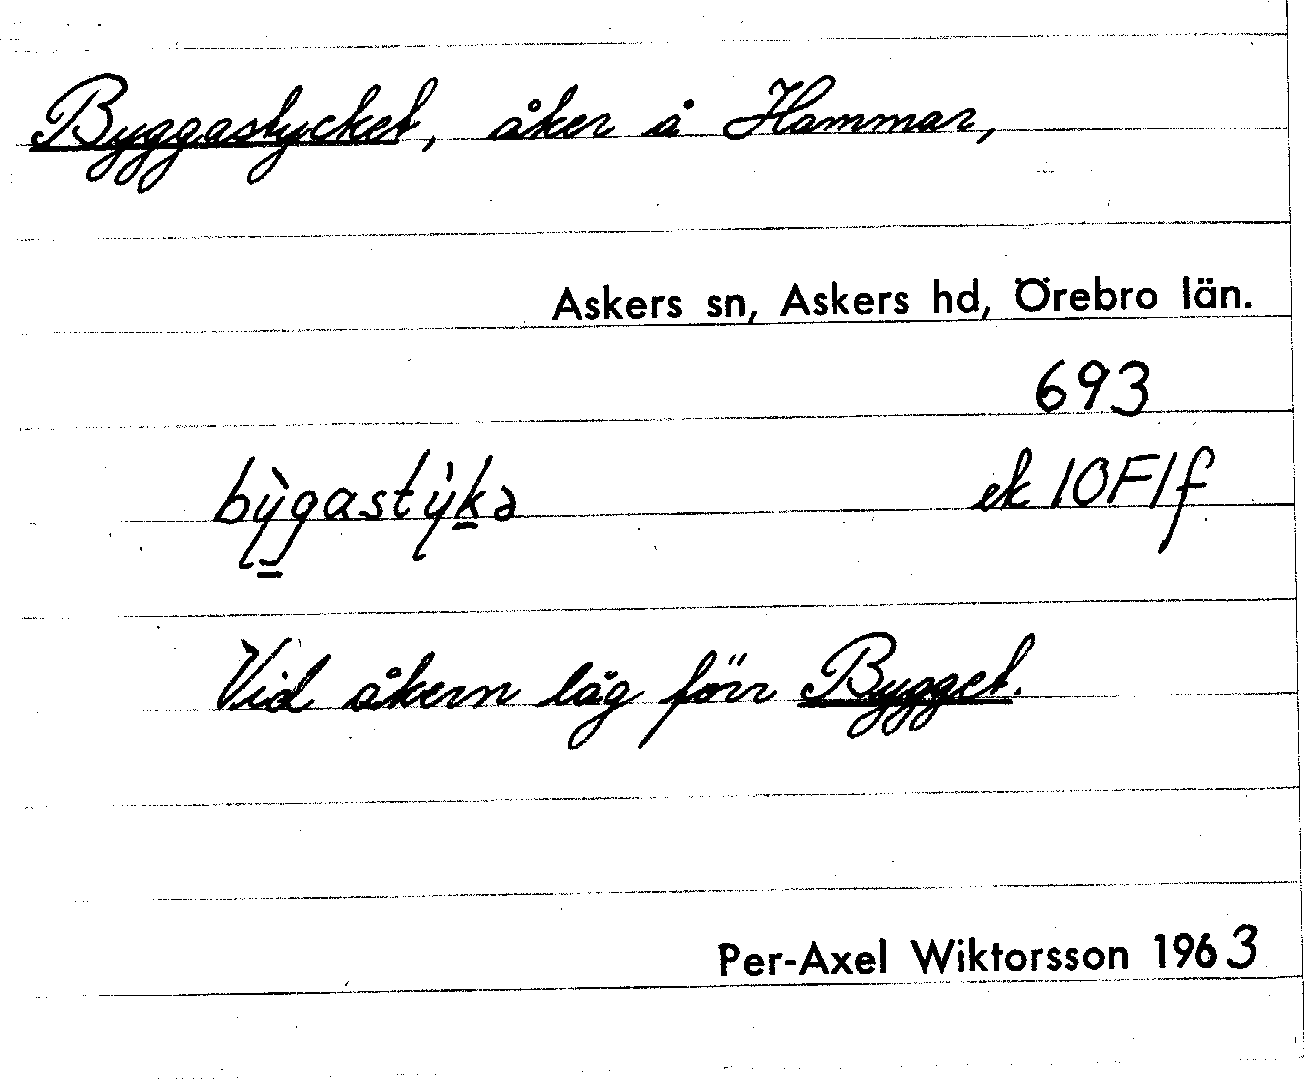 Byggastycket, åker å Hammar,
Askers sn, Askers hd, Örebro län.
693
bỳ̳gastỳḵə ek 10F1f
Vid åkern låg förr Bygget.
Per-Axel Wiktorsson 1963